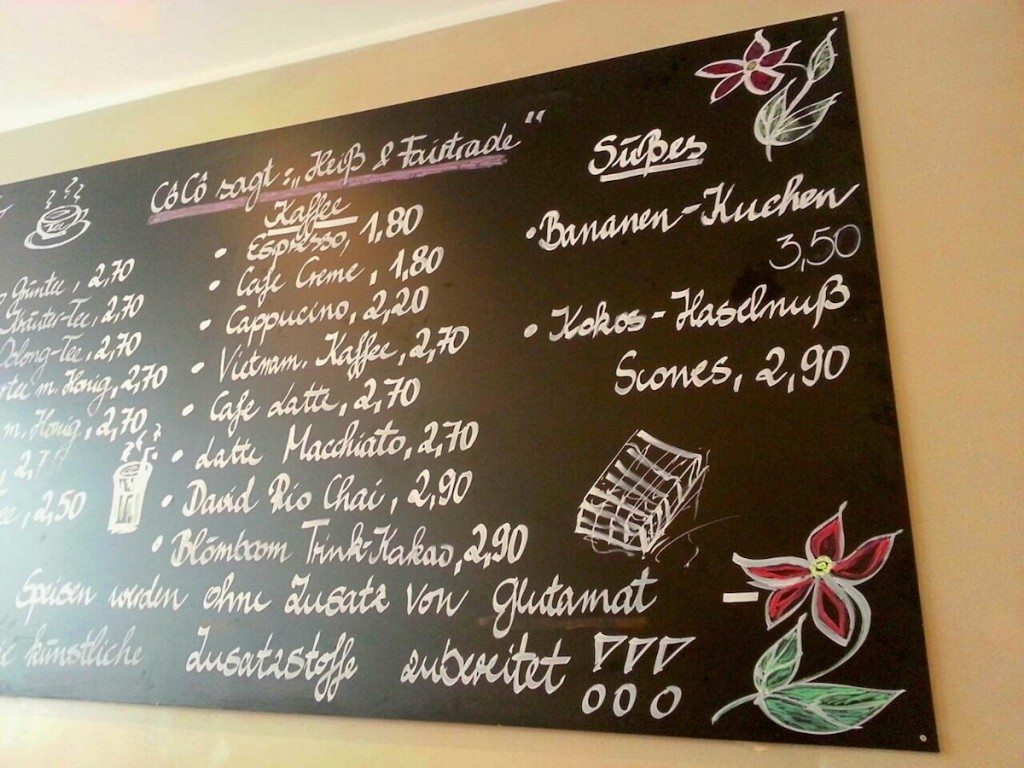 CôCô sagt: „Heiß & Fairtrade"
Kaffee
• Espresso, 1,80
• Cafe Creme, 1,80
• Cappucino, 2,20
• Vietnam. Kaffee, 2,70
• Cafe Latte, 2,70
• Latte Macchiato, 2,70
• David Rio Chai, 2,90
• Blömboom Trink-Kakao, 2,90
Grüntee, 2,70
Kräuter-Tee, 2,70
Oolong-Tee, 2,70
m. Honig, 2,70
m. Honig, 2,70
2,50
Süßes
• Bananen-Kuchen
3,50
• Kokos-Haselnuß
Scones, 2,90
Speisen werden ohne Zusatz von Glutamat -
künstliche Zusatzstoffe zubereitet !!!